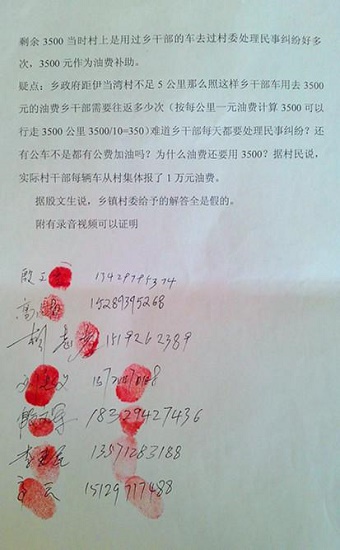 剩余 3500 当时村上是用过乡干部的车去过村委处理民事纠纷好多
次，3500 元作为油费补助。
疑点：乡政府距伊当湾村不足 5 公里那么照这样乡干部车用去 3500
元的油费乡干部需要往返多少次（按每公里一元油费计算 3500 可以
行走 3500 公里 3500/10=350）难道乡干部每天都要处理民事纠纷？还
有公车不是都有公费加油吗？为什么油费还要用 3500？据村民说，
实际村干部每辆车从村集体报了 1 万元油费。
据殷文生说，乡镇村委给予的解答全是假的。
附有录音视频可以证明
15289395268
1519262389
18329427436
13571283188